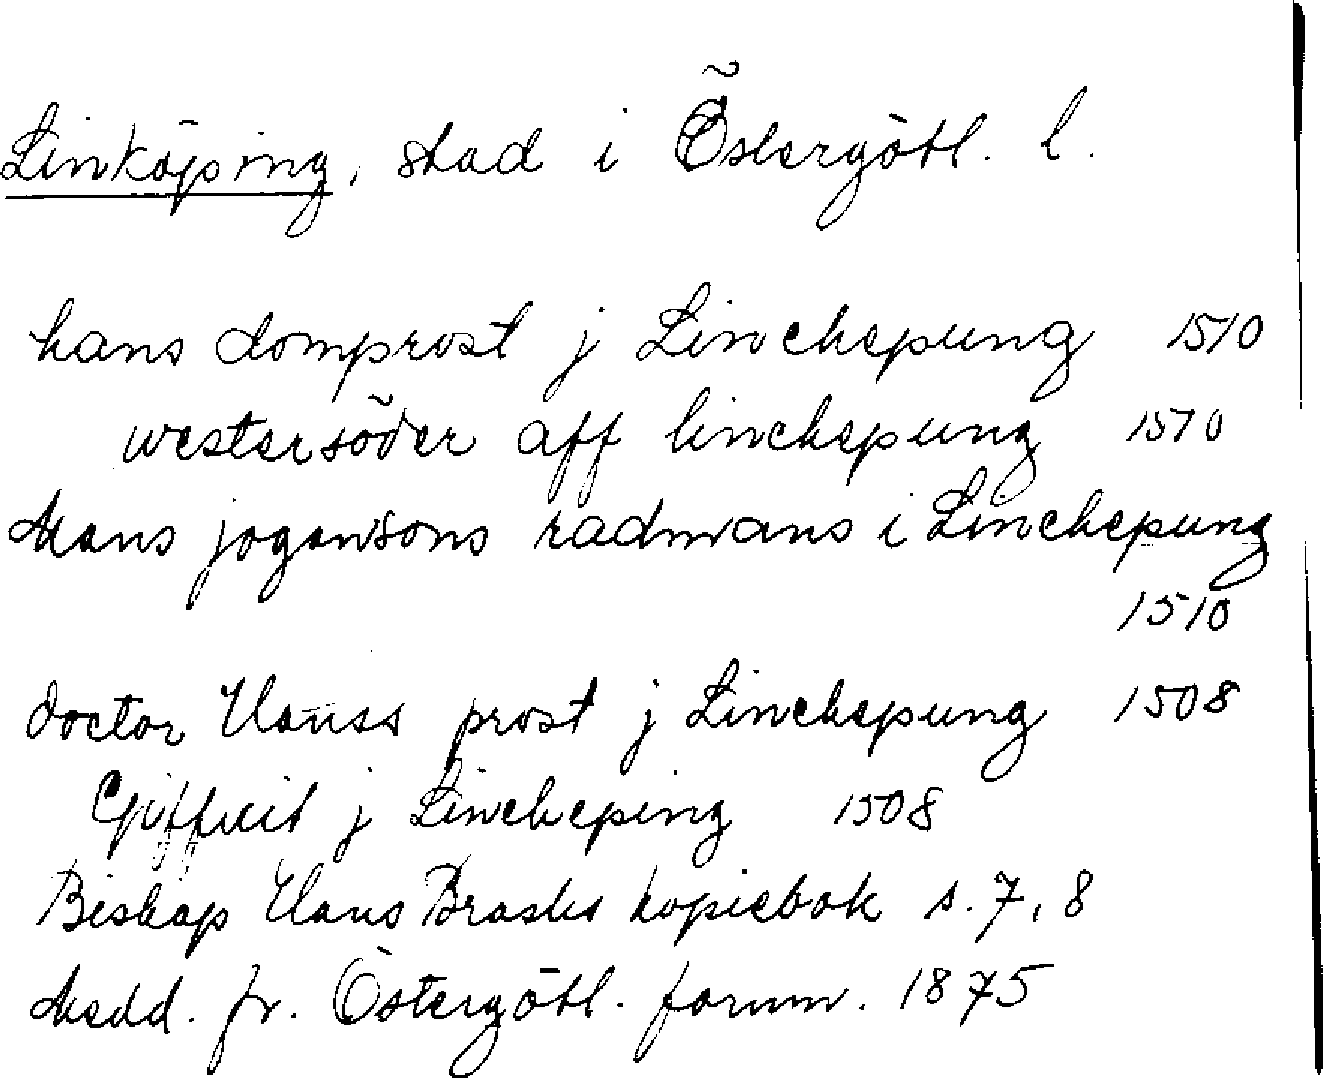 Linköping, stad i Östergötl. l.
hans domprost j Linchepung 1510
westersöder aff linchepung 1510
Mans jogansons radmans i Linchepung
1510
doctor Hanss prost j Linchepung 1508
Giffuit j Lincheping 1508
Biskop Hans Brasks kopiebok s. 7, 8
Medd. fr. Östergötl. fornm. 1875